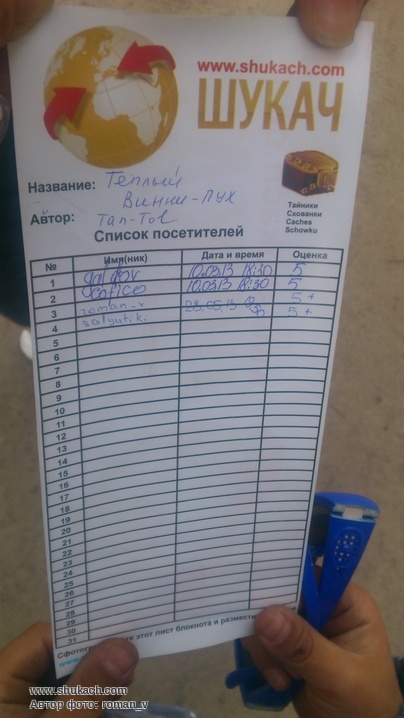 www.shukach.com
ШУКАЧ
Название: Тёплый
Винни-Пух
Автор: Tan-Tov
Тайники
Схованки
Caches
Schowku
Список посетителей
№ Имя(ник) Дата и время Оценка
1 10.03.13 18:30 5
2 10.03.13 18:30 5
3 roman_v 23.05.13 5+
4 salyutiki 5+
5
6
7
8
9
10
11
12
13
14
15
16
17
18
19
20
21
22
23
24
25
26
27
28
29
30
31
этот лист блокнота и размести
www.shukach.com
Автор фото: roman_v